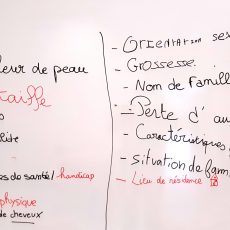 leur de peau
taille
lité
es du santé / handicap
physique
de cheveux
- Orientation ses
- Grossesse.
- Nom de famill
- Perte d' au
- Caractéristiques
- situation de fam
- Lieu de résidence